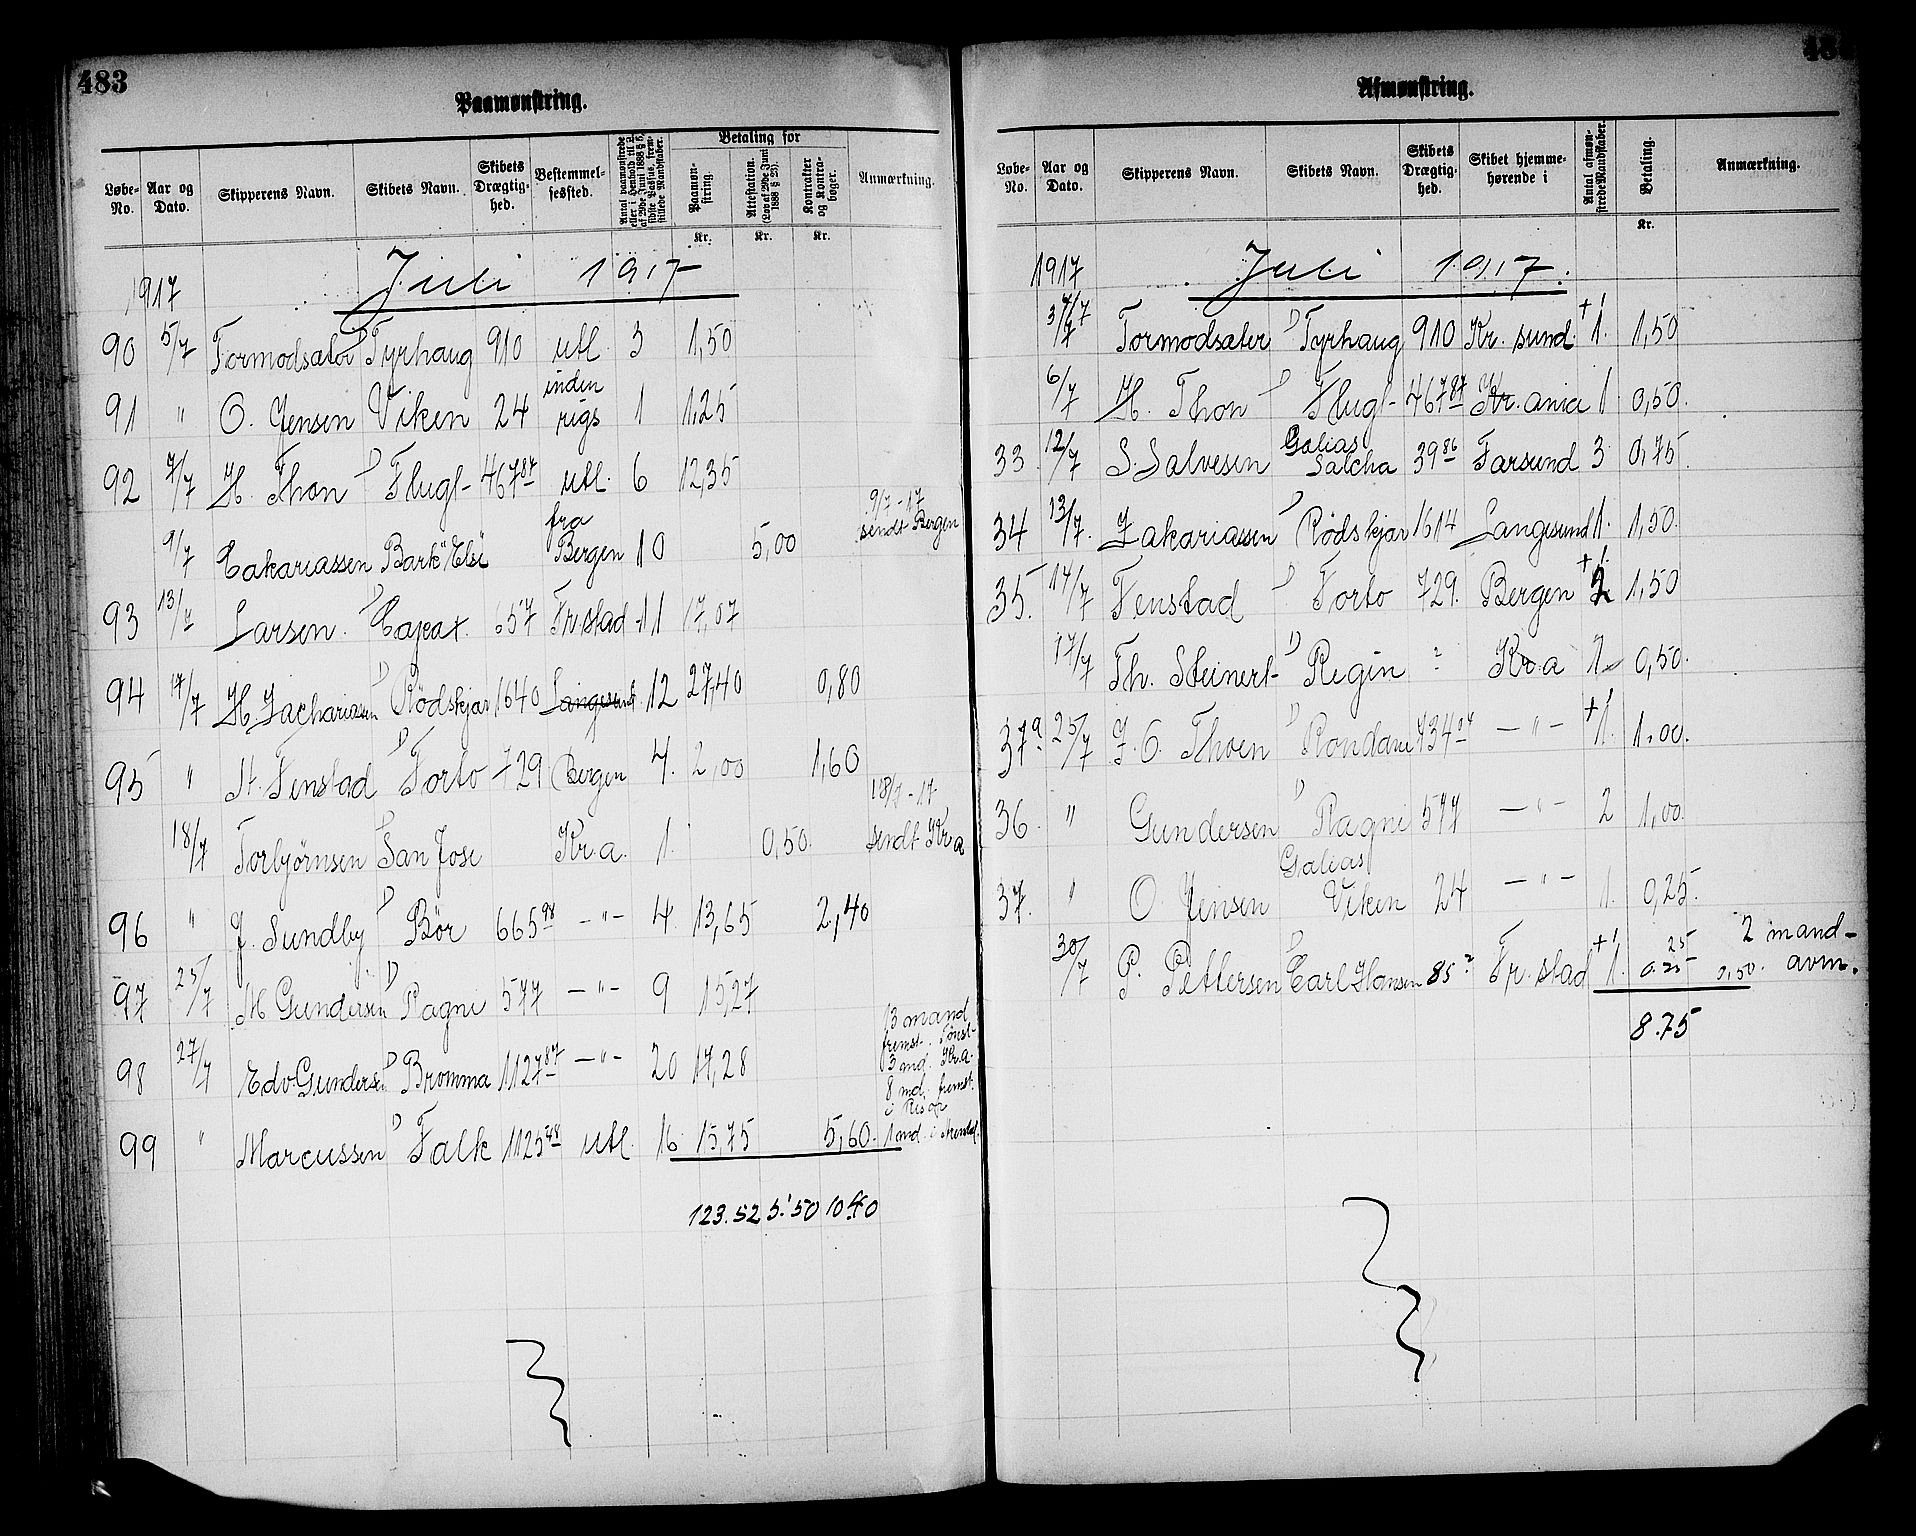 483
Paamønstring.
Løbe-No. Aar og Dato. Skipperens Navn. Skibets Navn. Skibets Drægtighed. Bestemmelsessted. Betaling for Paamønstring. Attestation. (Lov af 29de Juni 1888 § 23). Kontrakter og Kontrabøger. Anmærkning.
Kr. Kr. Kr.
1917 Juli 1917
90 5/7 Tormodsæter D Tyrhaug 910 utl. 3 1,50
91 " O. Jensen Viken 24 inden rigs 1 1,25
92 7/7 H. Thon D Flugt 467 87 utl. 6 12,35
9/7 Cakariassen Bark "Elsi fra Bergen 10 5,00 9/7-17 sendt Bergen
93 13/7 Larsen. D Capax. 657 Fr.stad 11 17,07
94 17/7 H Zachariassen D Rödskjær 1640 Langesund 12 27,40 0,80
95 " St. Fenstad D Torto 729 Bergen 4. 2,00 1,60
18/7 Torbjørnsen D San Jose Kr.a. 1. 0,50. 18/7-17 sendt Kr a
96 " J. Sundby D Bör 665 98 -"- 4 13,65 2,40
97 25/7 M Gundersen D Ragni 577 -"- 9 15,27
98 27/7 Edv. Gundersen D Bromma 1127 87 -"- 20 17,28 13 mand fremst. 3 md. Kr.a. 8 md. fremst. i Risør
99 " Marcussen D Falk 1125 48 utl. 16 15,75 5,60. 1 md. i Arendal.
123.52 5.50 10.40
Afmønstring.
Løbe-No. Aar og Dato. Skipperens Navn. Skibets Navn. Skibets Drægtighed. Skibet hjemmehørende i Antal afmønstrede Mandskaber. Betaling. Anmærkning.
Kr.
1917 Juli 1917.
Tormodsæter D Tyrhaug 910 Kr. sund. +1 1. 1,50
6/7 H. Thon D Flugt 467 87 Kr.ania 1. 0,50.
33. 12/7 S. Salvesen Galias Salcha 39 86 Farsund 3 0,75.
34 13/7. Zakariassen D Rödskjær 1614 Langesund 1. 1,50.
35. 14/7 Fenstad D Torto 729. Bergen +1. 2 1,50
17/7 Th. Steinert D Regin ? Kr.a 1 0,50.
37a. 25/7 J.O. Thoen D Rondane 434 -"- +1. 1.00.
36. " Gundersen D Ragni 577 -"- 2 1,00.
37. " O. Jensen Galias Viken 24 -"- 1. 0,25.
30/7 P. Pettersen D Carl Hansen 85 ? Fr. stad +1 1. 0.25 25 0,50. 2 mand avm.
8.75